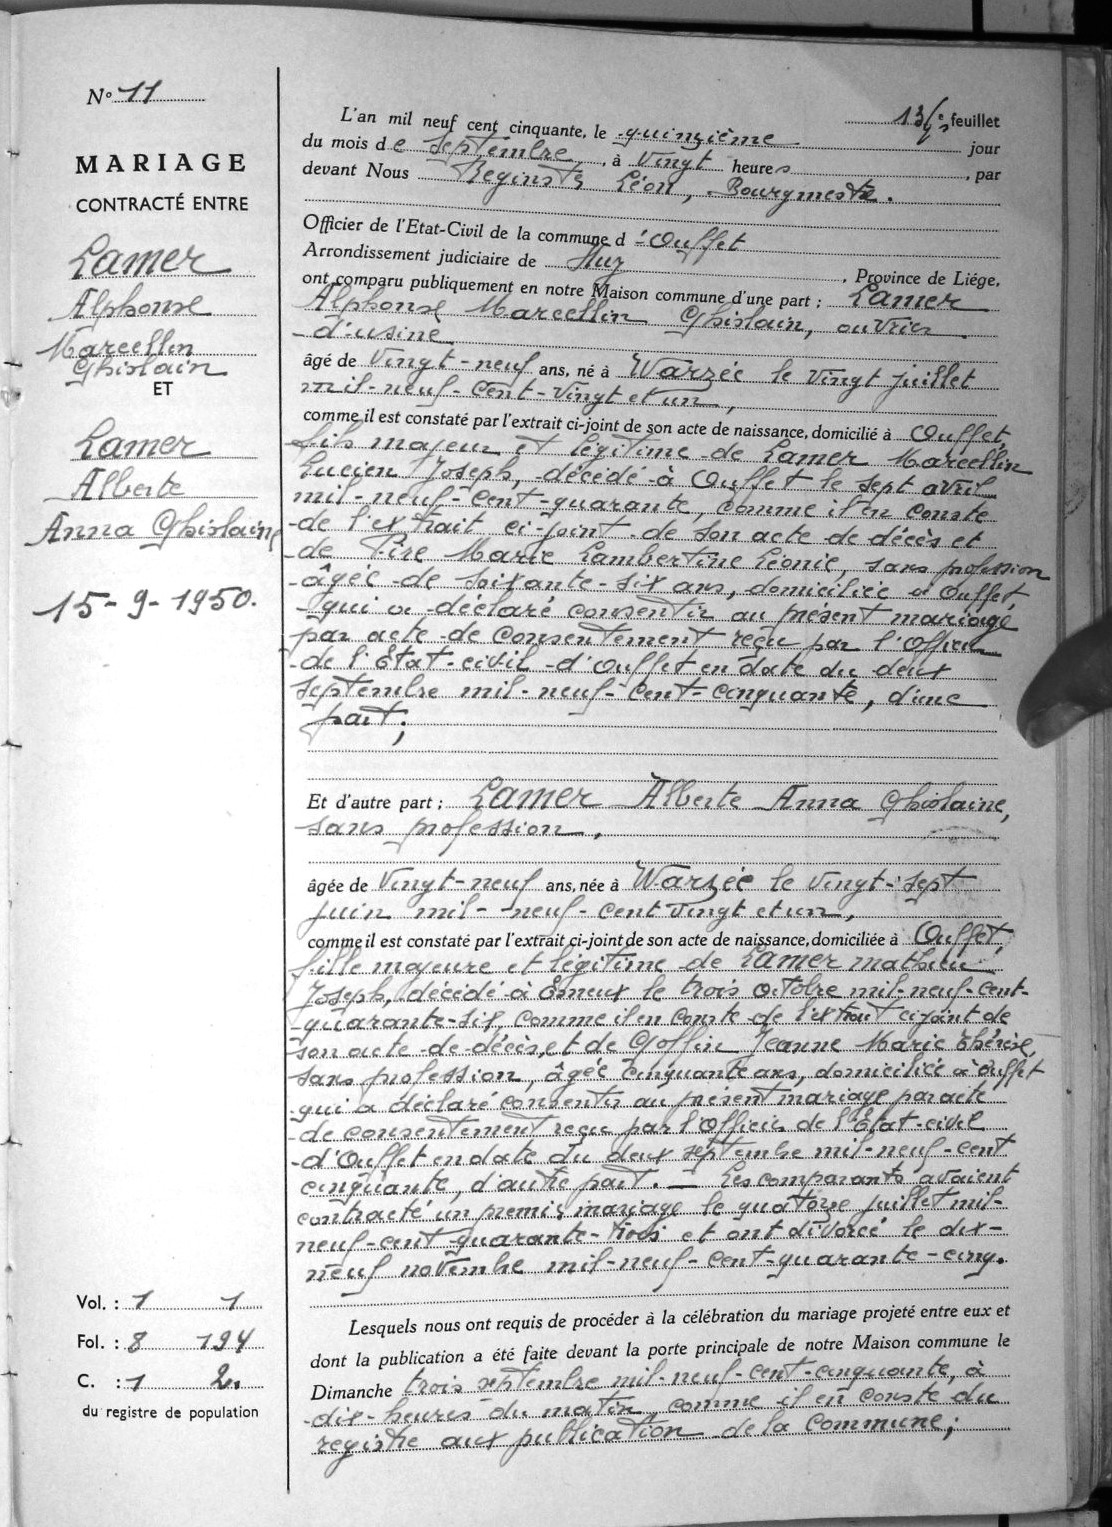 N° 11
MARIAGE
CONTRACTÉ ENTRE
Lamer
Alphonse
Marcellin
Ghislain
ET
Lamer
Alberte
Anna Ghislaine
15-9-1950.
Vol. : 1 1
Fol. : 8 194
C. : 1 2.
du registre de population
feuillet
L'an mil neuf cent cinquante, le quinzième jour
du mois de septembre, à vingt heures, par
devant Nous Léon, Bourgmestre.
Officier de l'Etat-Civil de la commune d'Ouffet
Arrondissement judiciaire de Huy, Province de Liége,
ont comparu publiquement en notre Maison commune d'une part : Lamer
Alphonse Marcellin Ghislain, ouvrier
d'usine
âgé de vingt-neuf ans, né à Warzée le vingt juillet
mil-neuf-cent-vingt et un,
comme il est constaté par l'extrait ci-joint de son acte de naissance, domicilié à Ouffet,
fils majeur et légitime de Lamer Marcellin
Lucien Joseph, décédé à Ouffet le sept avril
mil-neuf-cent-quarante, comme il en conste
de l'extrait ci-joint de son acte de décès et
de Marie Lambertine Léonie, sans profession
âgée de soixante-six ans, domiciliée à Ouffet,
qui a déclaré consentir au présent mariage
par acte de consentement reçu par l'Officier
de l'Etat-civil d'Ouffet en date du deux
septembre mil-neuf-cent-cinquante, d'une
part;
Et d'autre part : Lamer Alberte Anna Ghislaine,
sans profession,
âgée de vingt-neuf ans, née à Warzée le vingt-sept
juin mil-neuf-cent vingt et un,
comme il est constaté par l'extrait ci-joint de son acte de naissance, domiciliée à Ouffet,
fille majeure et légitime de Lamer mathieu
Joseph, décédé à Esneux le trois octobre mil-neuf-cent-
quarante-six, comme il en conste de l'extrait ci-joint de
son acte de décès, et de Goffin Jeanne Marie Thérèse,
sans profession, âgée cinquante ans, domiciliée à Ouffet
qui a déclaré consentir au présent mariage par acte
de consentement reçu par l'Officier de l'Etat-civil
d'Ouffet en date du deux septembre mil-neuf-cent
cinquante, d'autre part. — Les comparants avaient
contracté un premier mariage le quatorze juillet mil-
neuf-cent-quarante-trois et ont divorcé le dix-
neuf novembre mil-neuf-cent-quarante-cinq.
Lesquels nous ont requis de procéder à la célébration du mariage projeté entre eux et
dont la publication a été faite devant la porte principale de notre Maison commune le
Dimanche trois septembre mil-neuf-cent-cinquante, à
dix-heures du matin, comme il en conste du
registre aux publication de la commune;